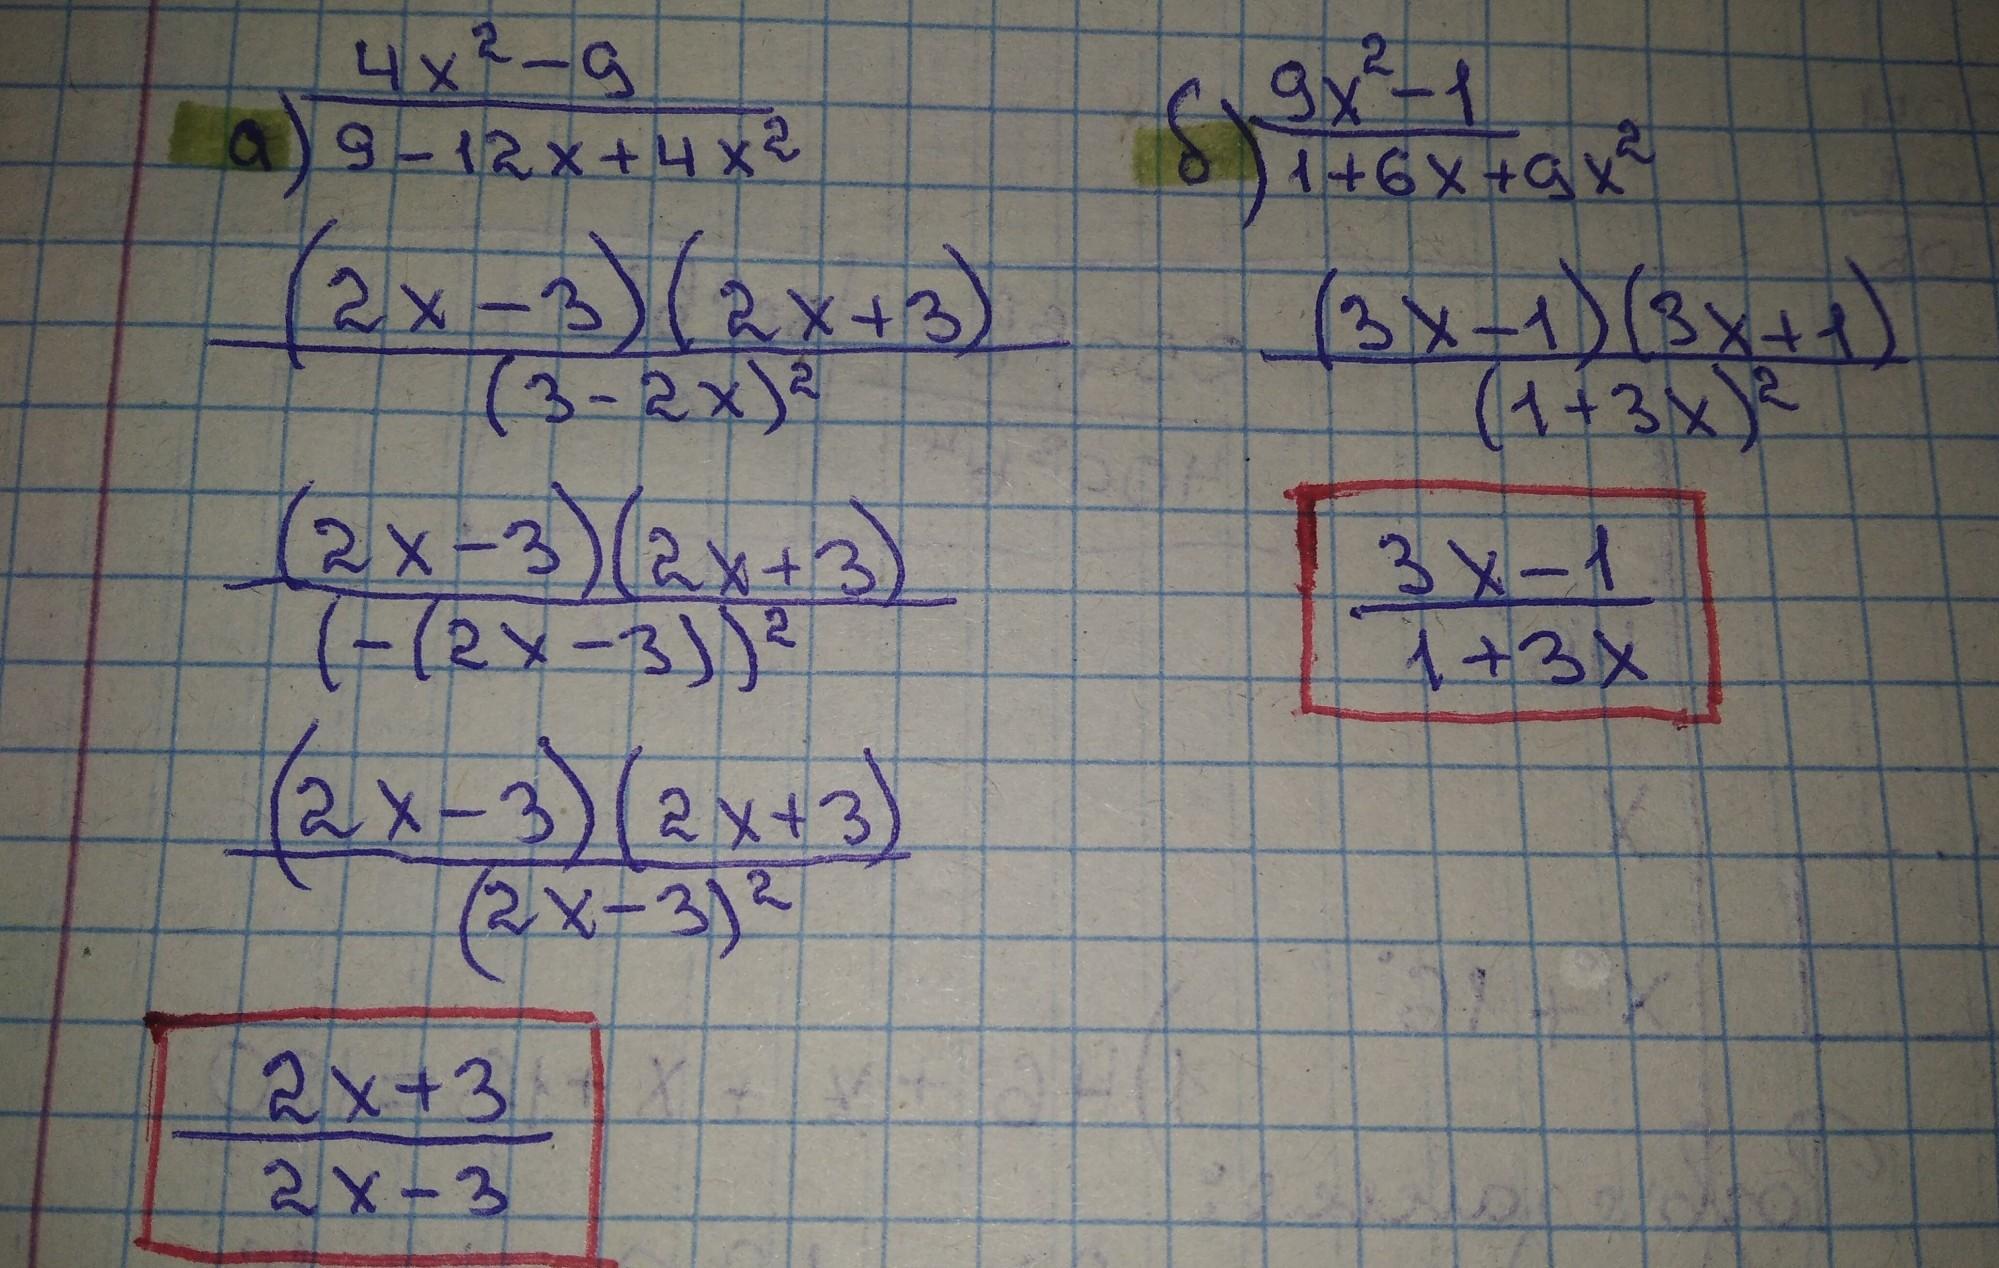 а) 4x²-9
9-12x+4x²
(2x-3)(2x+3)
(3-2x)²
(2x-3)(2x+3)
(-(2x-3))²
(2x-3)(2x+3)
(2x-3)²
2x+3
2x-3
б) 9x²-1
1+6x+9x²
(3x-1)(3x+1)
(1+3x)²
3x-1
1+3x